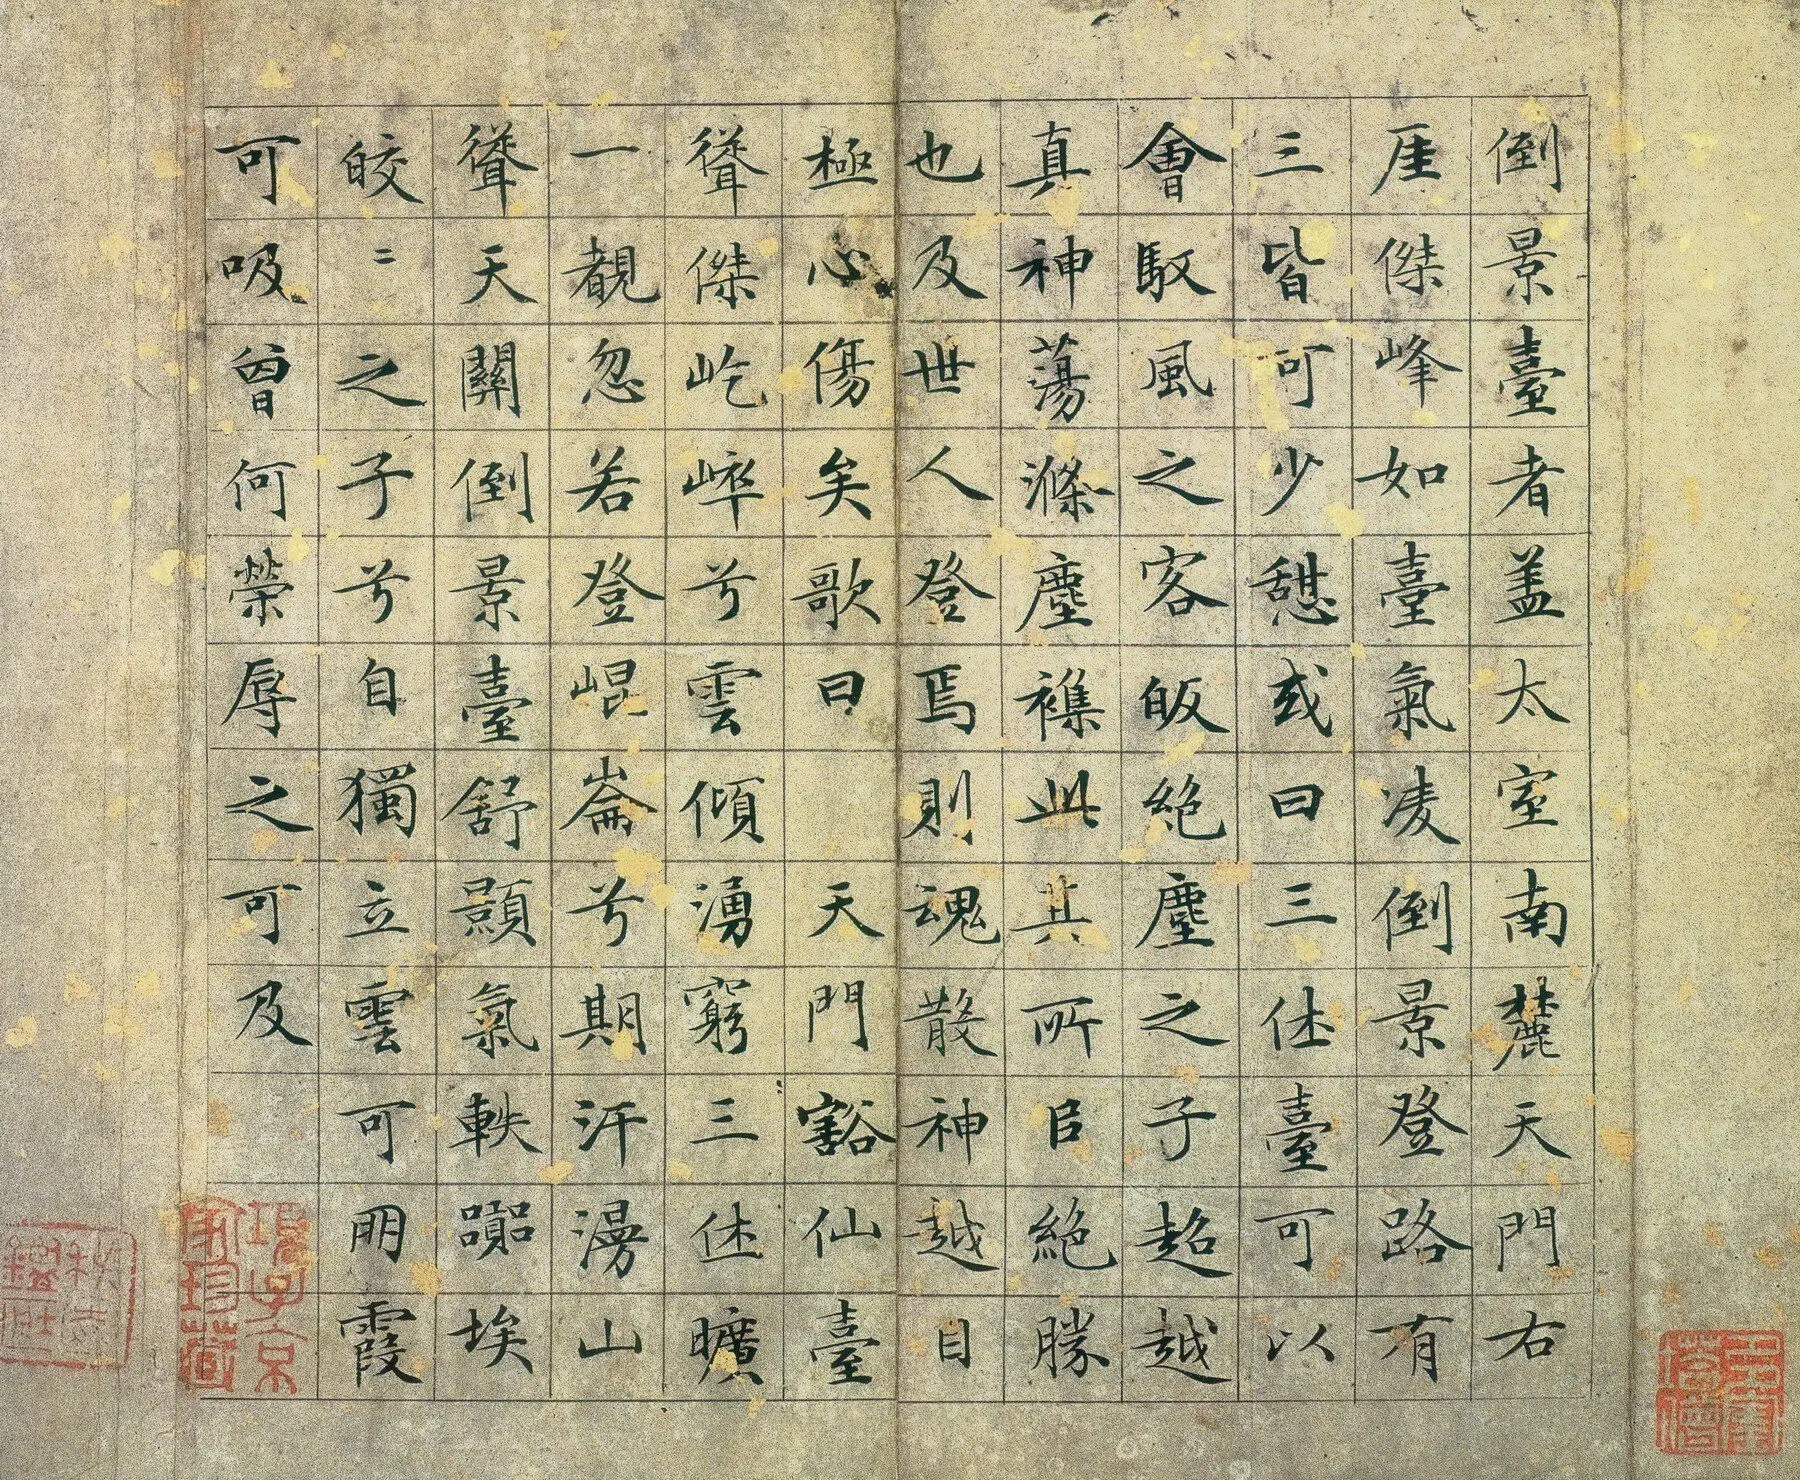 倒景臺者盖太室南麓天門右
厓傑峰如臺氣凌倒景登路有
三皆可少憩或曰三休臺可以
會馭風之客皈絶塵之子超越
真神蕩滌塵襍此其所㠯絶勝
也及世人登焉則魂散神越目
極心傷矣歌曰　天門豁仙臺
聳傑屹崒兮雲傾湧窮三休曠
一覩忽若登崐崙兮期汗漫山
聳天關倒景臺舒顥氣軼嚻埃
皎〻之子兮自獨立雲可朋霞
可吸曾何榮辱之可及
項子京家珍藏